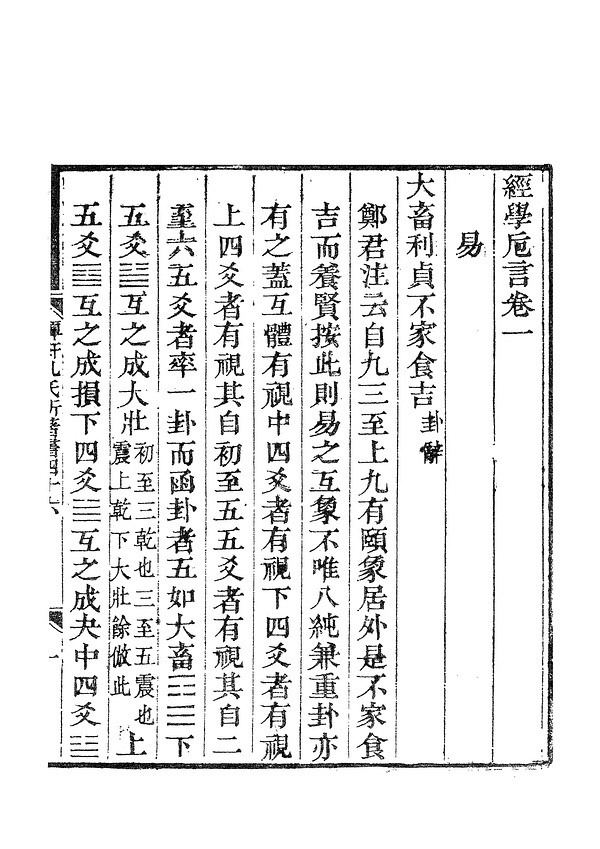 經學卮言卷一
易
大畜利貞不家食吉卦辭
鄭君注云自九三至上九有頤象居外是不家食
吉而養賢按此則易之互象不唯八純兼重卦亦
有之蓋互體有視中四爻者有視下四爻者有視
上四爻者有視其自初至五五爻者有視其自二
至六五爻者率一卦而函卦者五如大畜下
五爻互之成大壯初至三乾也三至五震也震上乾下大壯餘倣此上
五爻互之成損下四爻互之成夬中四爻